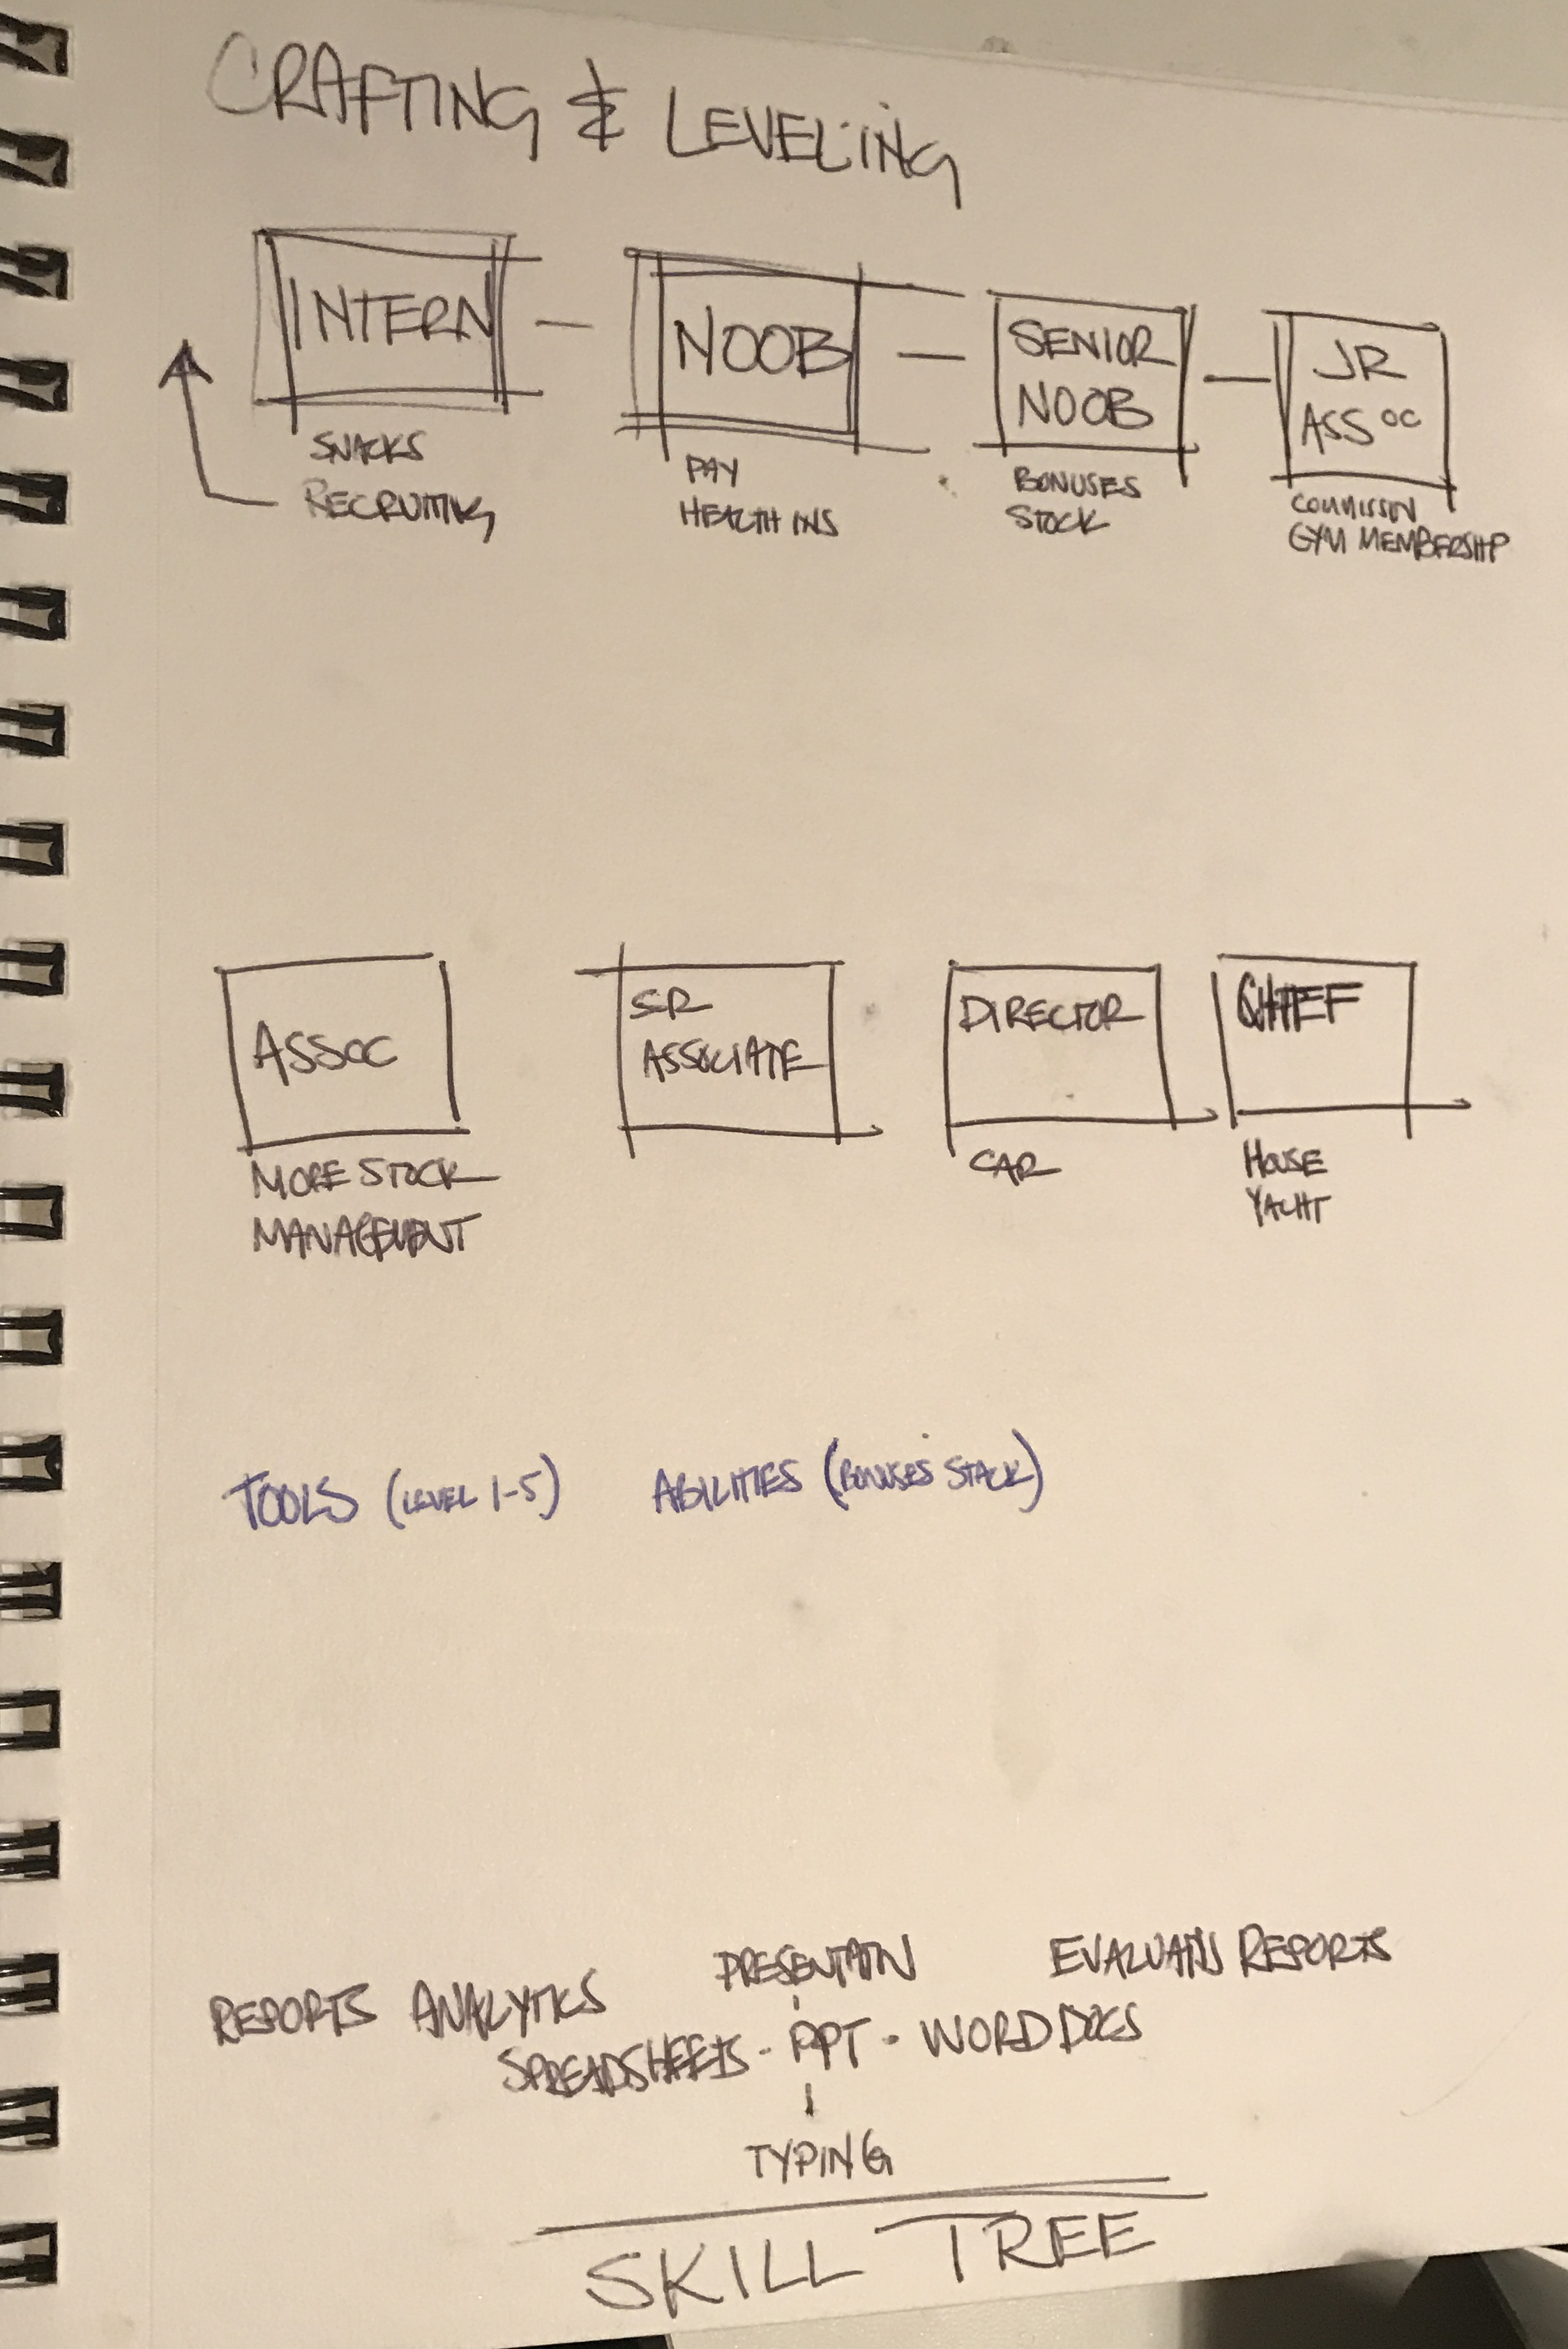 CRAFTING & LEVELING
INTERN
SNACKS
RECRUITING
NOOB
PAY
HEALTH INS
SENIOR
NOOB
BONUSES
STOCK
JR
ASSOC
COMMISSION
GYM MEMBERSHIP
ASSOC
MORE STOCK
MANAGEMENT
SR
ASSOCIATE
DIRECTOR
CAR
CHIEF
HOUSE
YACHT
TOOLS (LEVEL 1-5) ABILITIES (BONUSES STACK)
PRESENTATION EVALUATING REPORTS
REPORTS ANALYTICS
SPREADSHEETS - PPT - WORD DOCS
TYPING
SKILL TREE